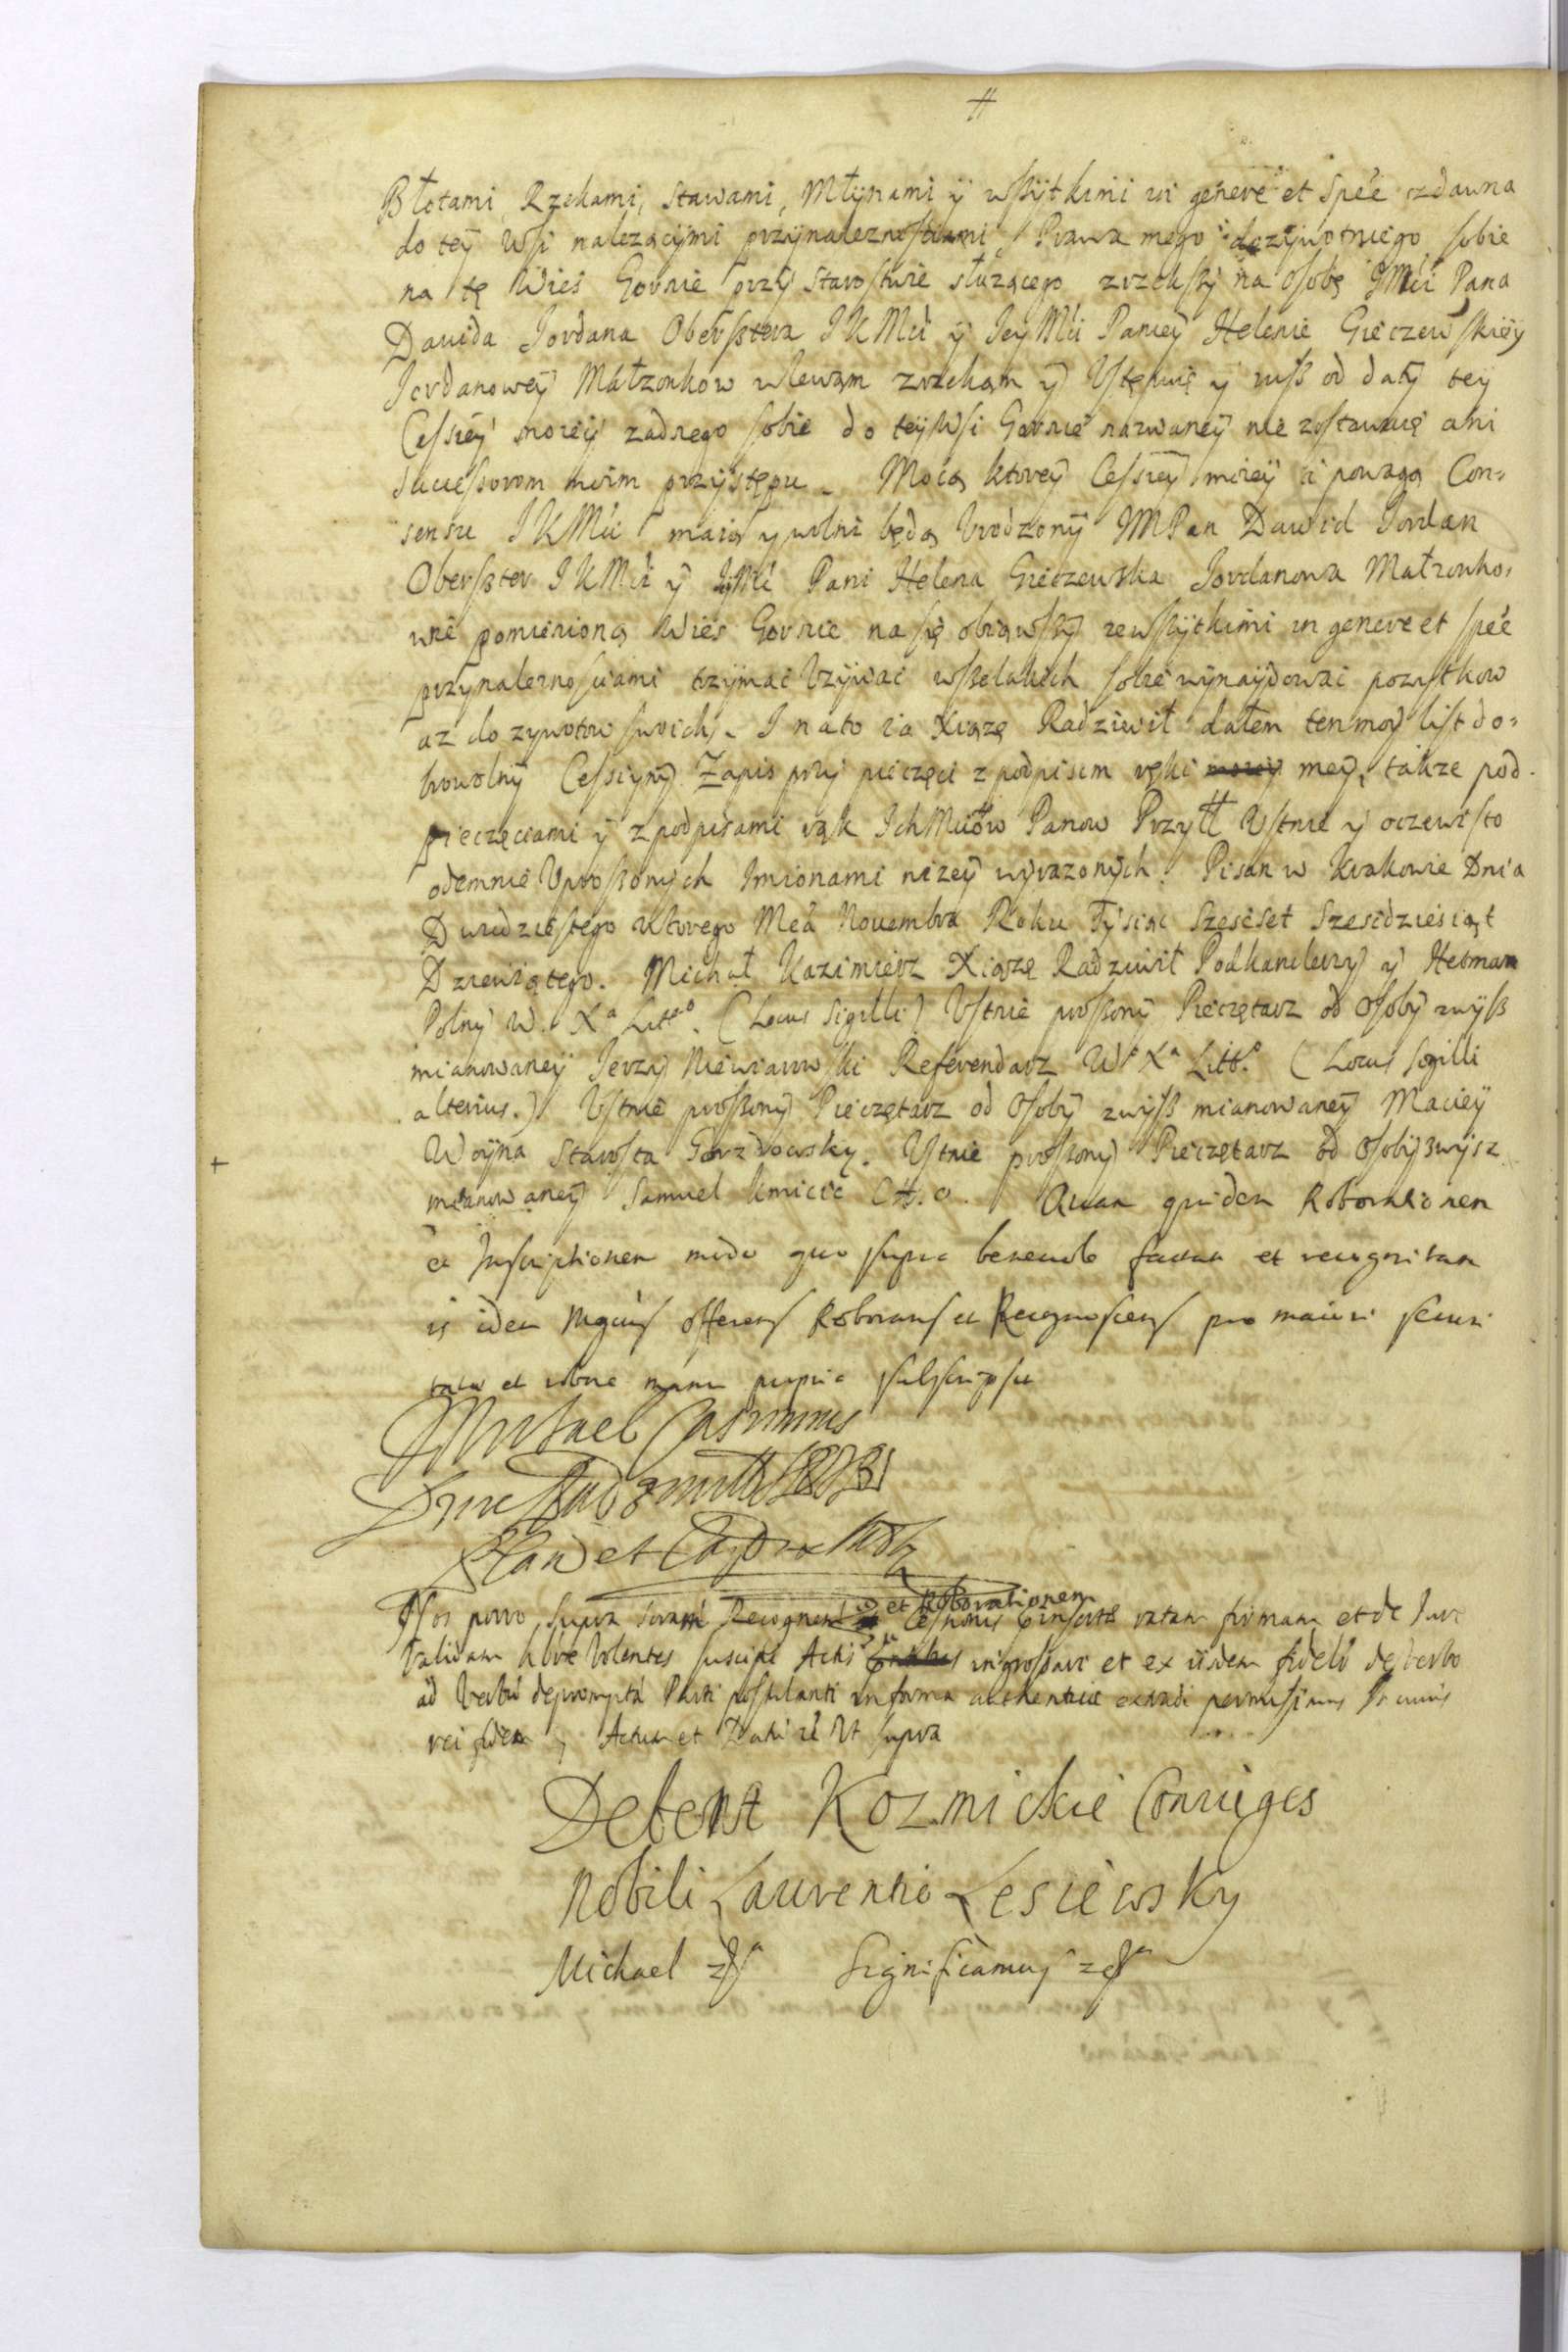 #
Błotami, Rzekami, Stawami, Młynami ÿ wszÿtkimi in genere et spée zdawna
do teÿ Wsi nalezącÿmi przynaleznosciami, Prawa mego dozÿwotniego sobie
na tę Wies Gornie przÿ Starostwie słuzącego zrzekszÿ na osobę JMći Pana
Dawida Jordana Oberszterа JKMći ÿ JeÿMći Panieÿ Helenie Gieczewskieÿ
Jordanoweÿ Małzonkow wlewam zrzekam ÿ Ustępuię ÿ iusz od datÿ teÿ
Cessieÿ moieÿ zadnego sobie do teÿ Wsi Gornie nazwaneÿ nie zostawuię ani
Successorom moim przÿstępu. Mocą ktoreÿ Cessieÿ moieÿ i powagą Con=
sensu JKMći maią ÿ wolni będą Urodzonÿ JMPan Dawid Jordan
Oberszter JKMći ÿ JMć Pani Helena Gieczewska Jordanowa Małzonko,
wie pomienioną Wies Gornie na się obiąwszÿ zewszÿtkimi in genere et spée
przynaleznosciami trzÿmać Uzÿwać wszelakich sobie wÿnaÿdować pozÿtkow
az do zywotow swoich. I na to ia Xiąze Radziwił dałem ten moÿ list do=
browolnÿ Cessÿinÿ Zapis przÿ pieczęci z podpisem ręki moieÿ meÿ, takze pod
pieczęciami ÿ z podpisami rąk IchMciow Panow Przÿtł Ustnie ÿ oczewisto
odemnie Uproszonych Imionami nizeÿ wÿrazonÿch. Pisan w Krakowie Dnia
Dwudziestego wtorego Mća Nouembra Roku Tÿsiąc Szescset Szescdziesiąt
Dziewiątego. Michał Kazimierz Xiąze Radziwił Podkanclerzÿ ÿ Hetman
Polnÿ W. Xa Littgo. (Locus Sigilli) Ustnie proszonÿ Pieczętarz od osobÿ zwÿsz
mianowaneÿ Jerzÿ Niewiarowski Referendarz Wo Xa Litto. (Locus Sigilli
alterius.) Ustnie proszonÿ Pieczętarz od osobÿ zwÿsz mianowaneÿ Macieÿ
Woÿna Starosta Gorzdowsky. Ustnie proszonÿ Pieczętarz od osobÿ zwÿsz
mianowaneÿ Samuel Kmicic Ch. O. Quam quidem Roborationem
et Inscriptionem modo quo supra benevole factam et recognitam
is idem Mgćus offerens Roborans et Recognoscens pro maiori securi
tate et robore manu propria subscripsit
Michael Casimirus
Dux Radziwill
Nos porro supra Recognem et Roborationem Cessionis insertae ratam firmam et de Jure
Validam habere Volentes suscipi Actis ingrossari et ex iisdem fideli de verbo
ad Verbu depromptu Parti postulanti in forma authentica extradi permisimus In cuius
rei fidem Actum et Datu ut supra
Debent Kozmickie Coniuges
Nobili Laurentio Lesiewsky
Michael Significamus